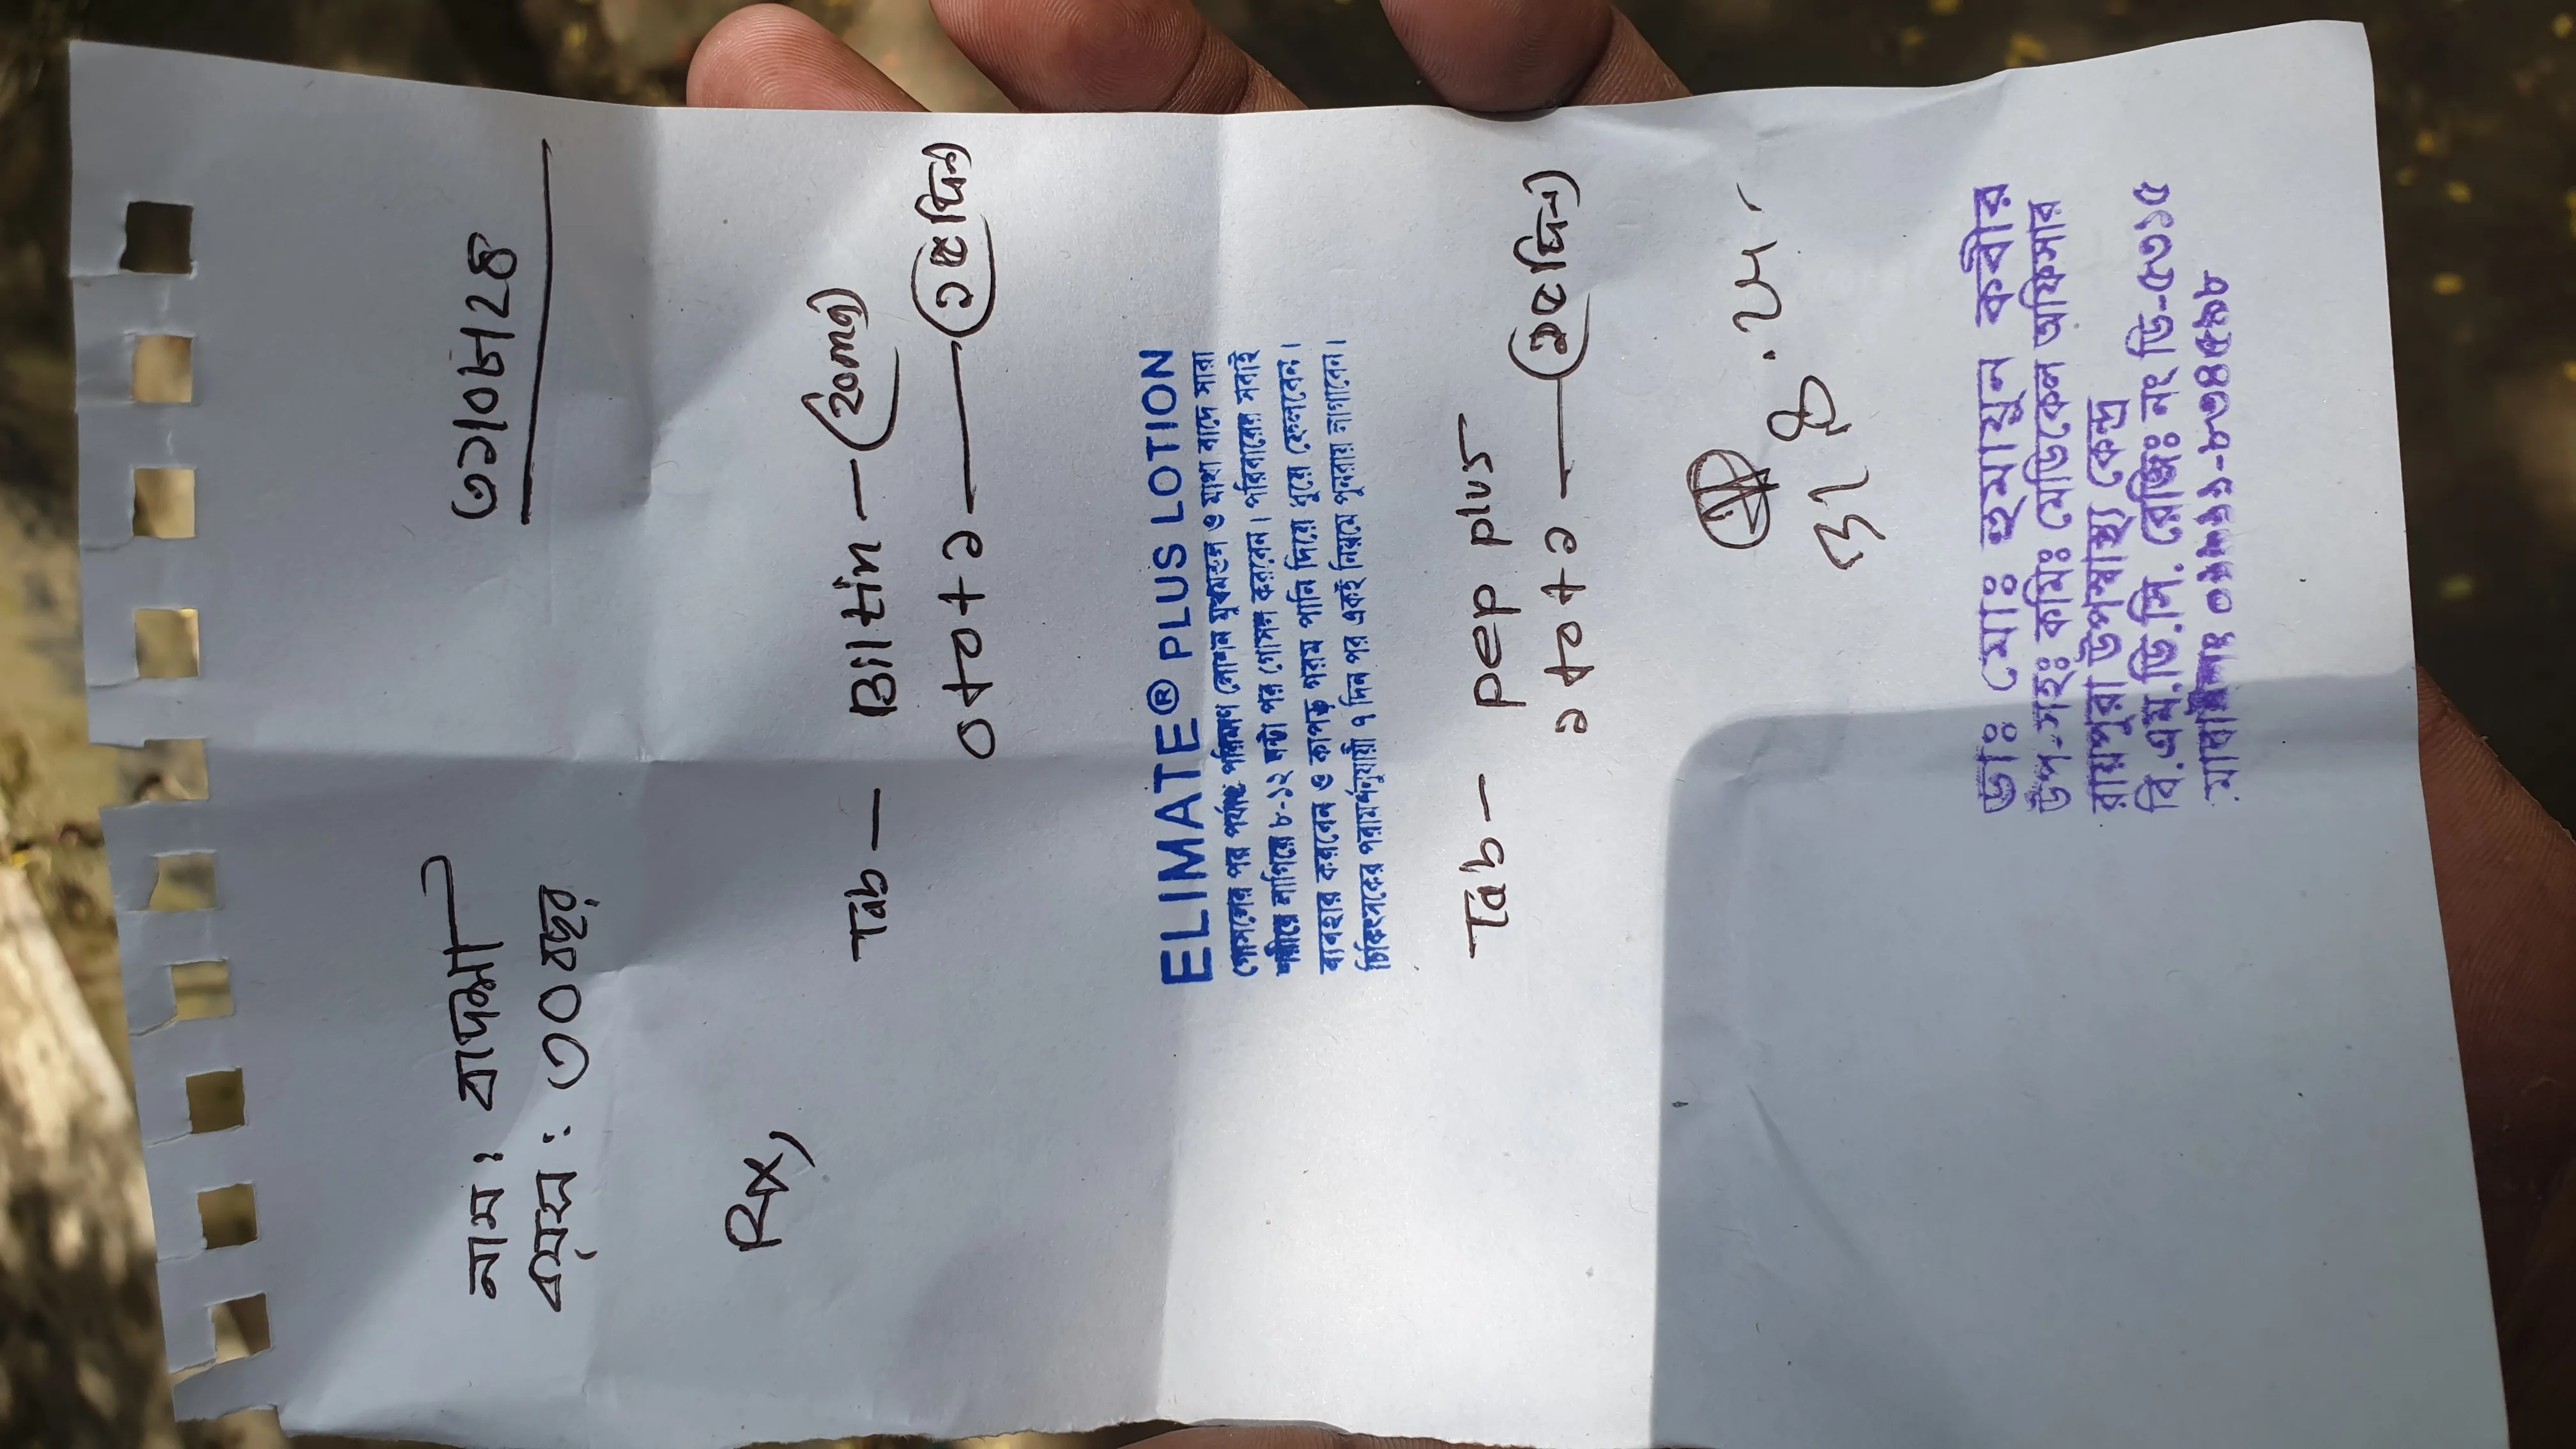 নাম: বাদশা
বয়স: ৩০ বছর
৩১।০৮।২৪
Rx,
Tab — Biltin — (20mg)
০+০+১ — (১৫ দিন)
ELIMATE® PLUS LOTION
গোসলের পর পর্যাপ্ত পরিমাণ লোশন মুখমন্ডল ও মাথা বাদে সারা
শরীরে লাগিয়ে ৮-১২ ঘন্টা পর গোসল করবেন। পরিবারের সবাই
ব্যবহার করবেন ও কাপড় গরম পানি দিয়ে ধুয়ে ফেলবেন।
চিকিৎসকের পরামর্শনুযায়ী ৭ দিন পর একই নিয়মে পুনরায় লাগাবেন।
Tab — pep plus
১+০+১ — (১৫ দিন)
ডাঃ মোঃ হুমায়ুন কবীর
উপ-সহঃ কমিঃ মেডিকেল অফিসার
রায়পুরা উপস্বাস্থ্য কেন্দ্র
বি.এম.ডি.সি. রেজিঃ নং ডি-৫৩১৫